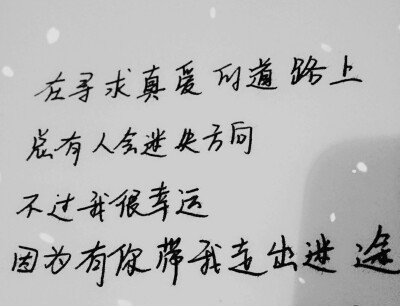 在寻求真爱的道路上
总有人会迷失方向
不过我很幸运
因为有你带我走出迷途